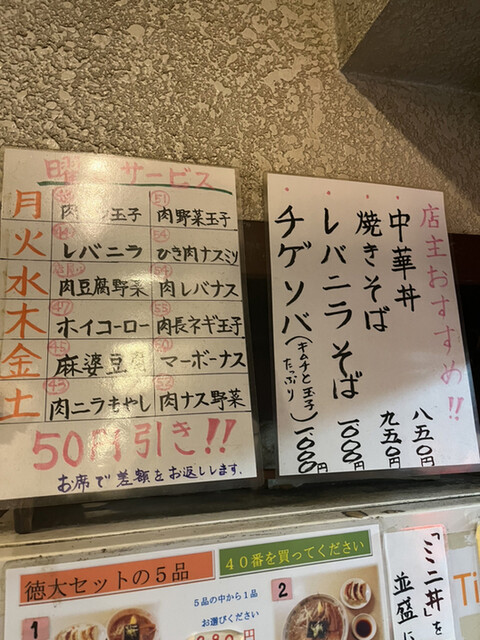 曜日サービス
月
肉
玉子
51
肉野菜玉子
火
レバニラ
54
ひき肉ナスミソ
水
肉豆腐野菜
肉レバナス
木
47
ホイコーロー
55
肉長ネギ玉子
金
45
麻婆豆腐
50
マーボーナス
土
43
肉ニラもやし
52
肉ナス野菜
50円引き!!
お席で差額をお返しします.
店主おすすめ!!
中華丼 八五〇円
焼きそば 九五〇円
レバニラそば 一〇〇〇円
チゲソバ(キムチと玉子たっぷり) 一〇〇〇円
徳大セットの5品
40番を買ってください
1
5品の中から1品
お選びください
2
「ミニ丼」を
並盛に
Ti